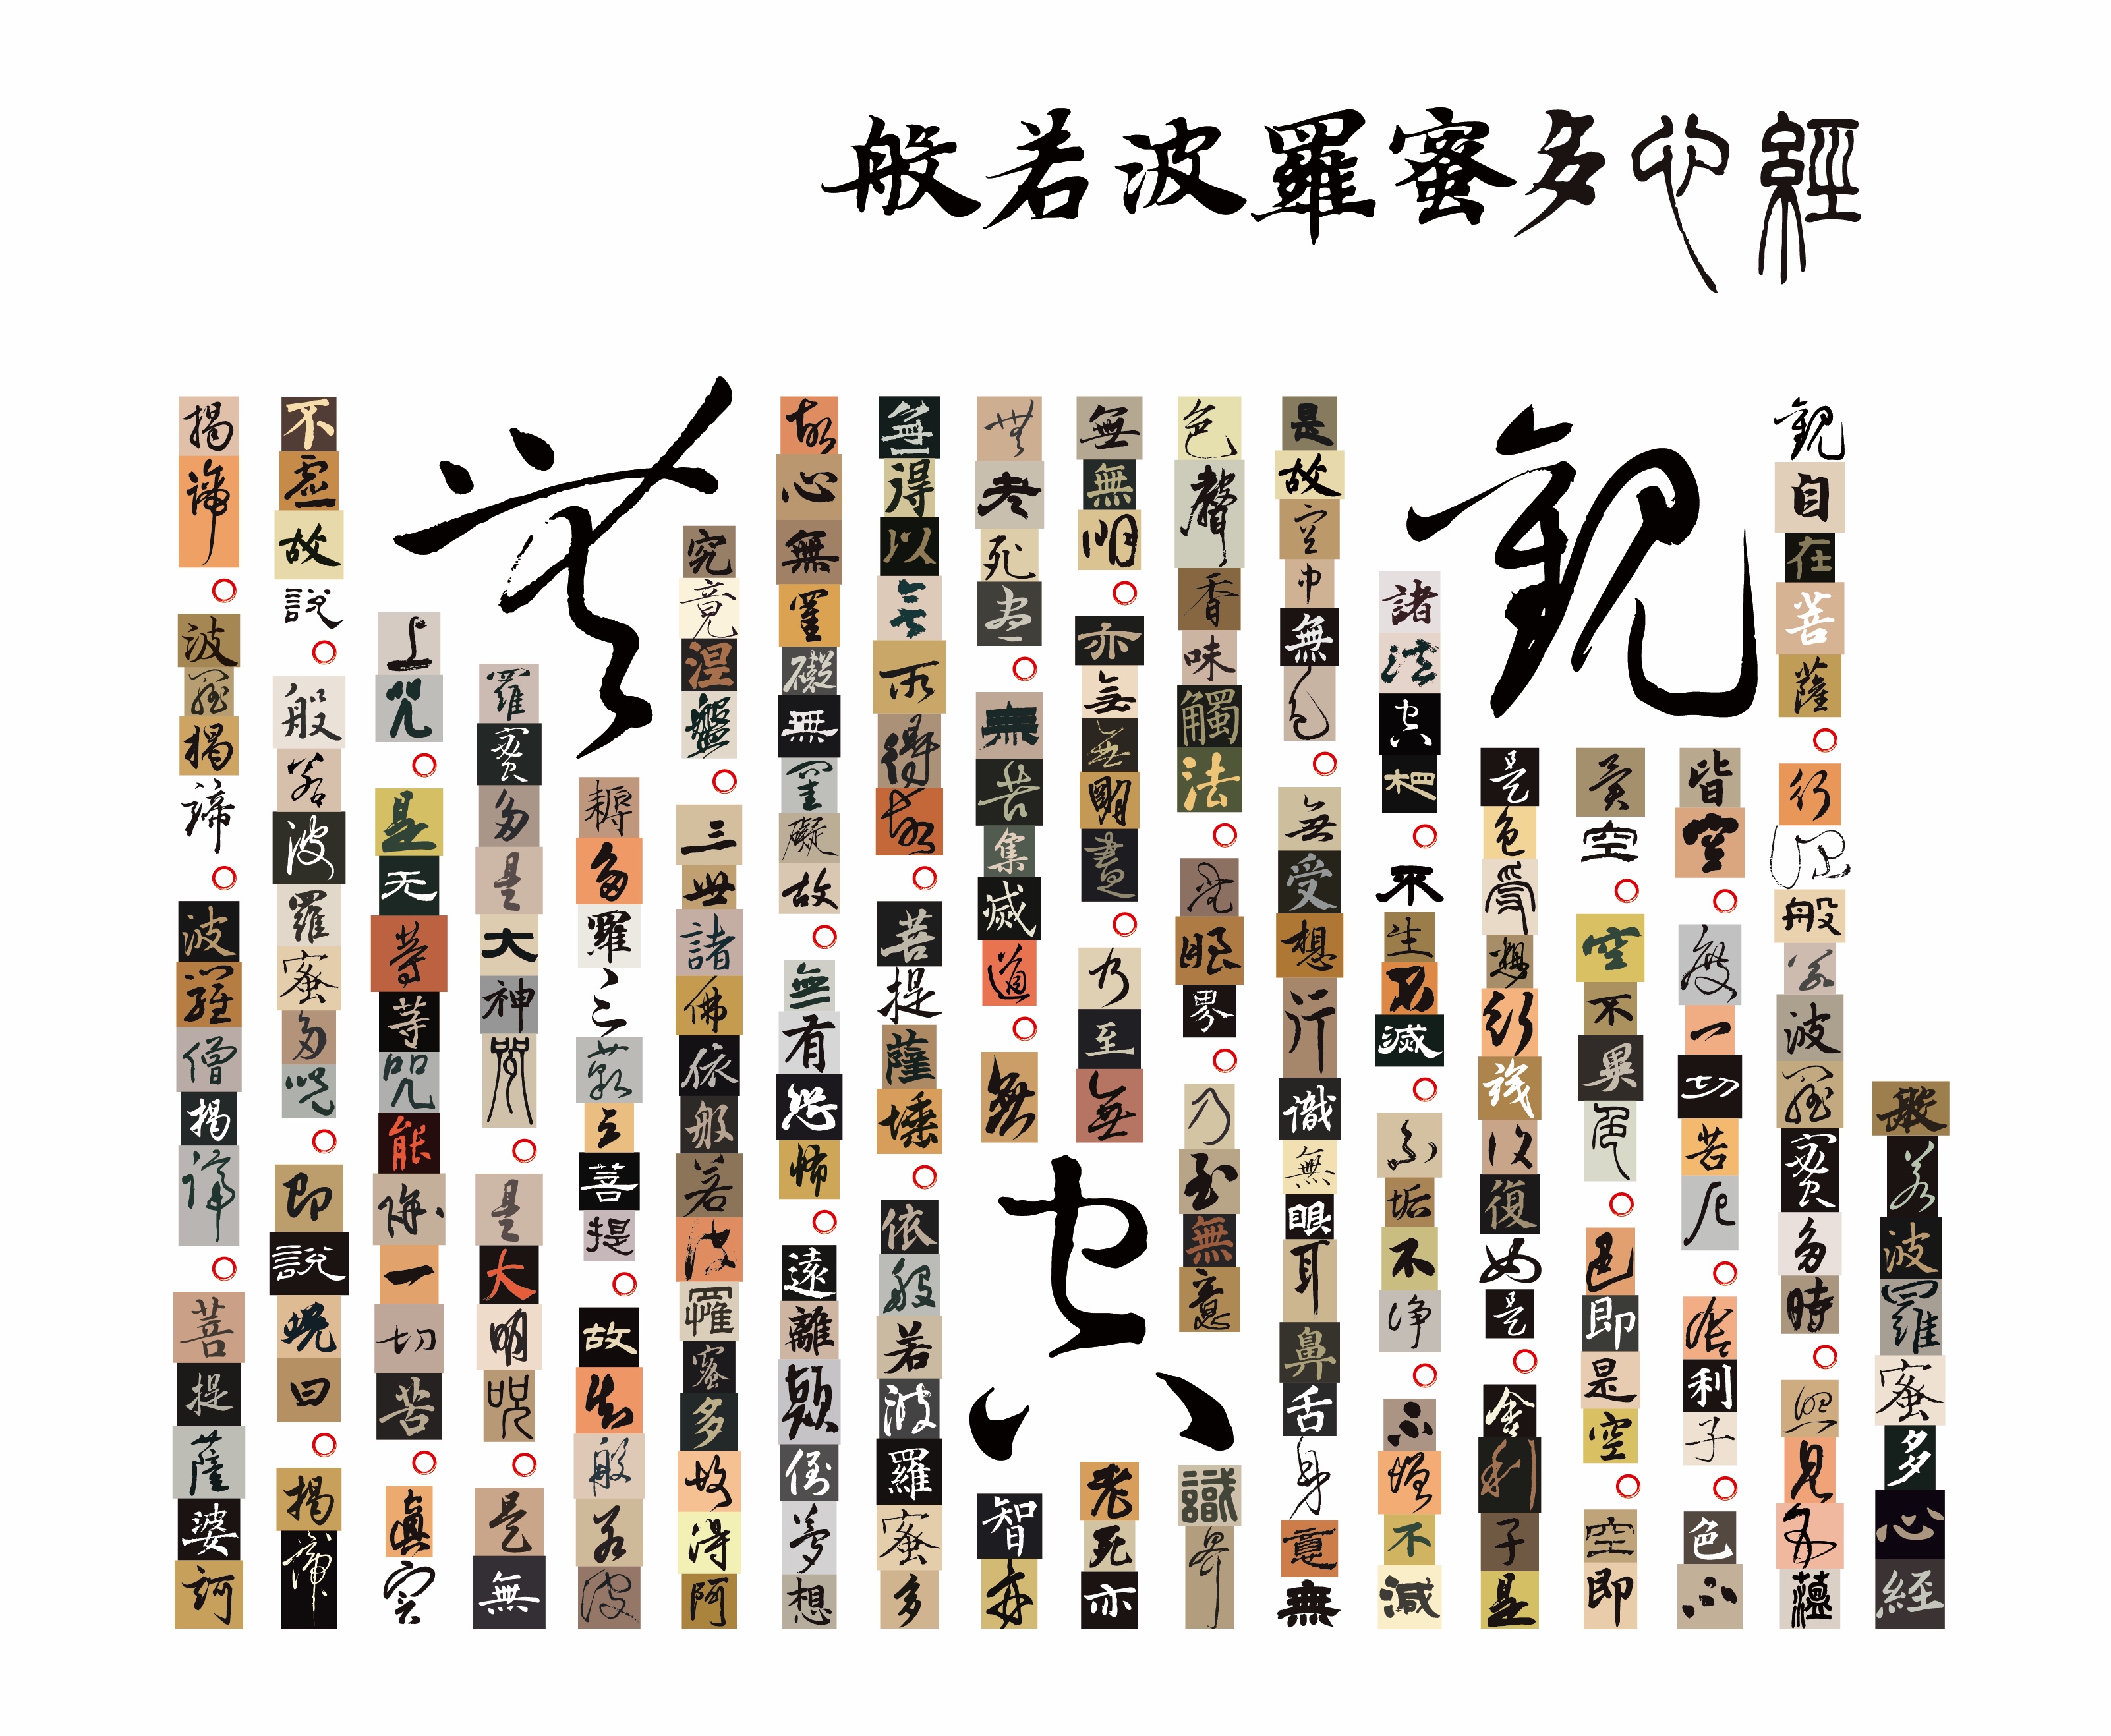 般若波羅蜜多心經
般若波羅蜜多心経
觀自在菩薩○行深般若波羅蜜多時○照見五蘊
皆空○度一切苦厄○舍利子○色不
觀
異空○空不異色○色即是空○空即
是色受想行識亦復如是○舍利子是
諸法空相○不生不滅○不垢不净○不增不減
是故空中無色○無受想行識無眼耳鼻舌身意無
色聲香味觸法○無眼界○乃至無意識界
無無明○亦無無明盡○乃至無老死亦
空
無老死盡○無苦集滅道○無智亦
無得以無所得故○菩提薩埵○依般若波羅蜜多
故心無罣礙無罣礙故○無有恐怖○遠離顛倒夢想
究竟涅盤○三世諸佛依般若波羅蜜多故得阿
無
耨多羅三藐三菩提○故知般若波
羅蜜多是大神咒○是大明咒○是無
上咒○是无等等咒能除一切苦○真实
不虛故說○般若波羅蜜多咒○即說咒曰○揭諦
揭諦○波羅揭諦○波羅僧揭諦○菩提薩婆訶